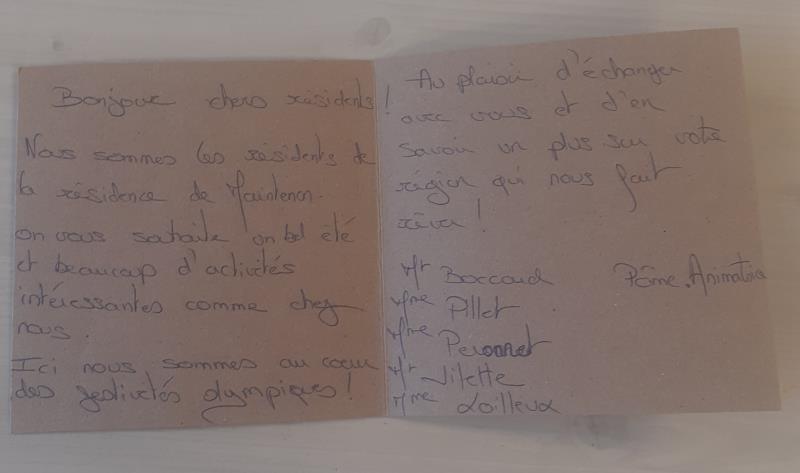 Bonjour chers résidents !
Nous sommes les résidents de
la résidence de Maintenon.
on vous souhaite un bel été
et beaucoup d'activités
intéressantes comme chez
nous.
Ici nous sommes au cœur
des festivités olympiques !
Au plaisir d'échanger
avec vous et d'en
savoir un plus sur votre
région qui nous fait
rêver !
Mr Boccard
Pôme. Animatrice
Mme Pillet
Mme Peronnet
Mr Vilette
Mme Loilleux